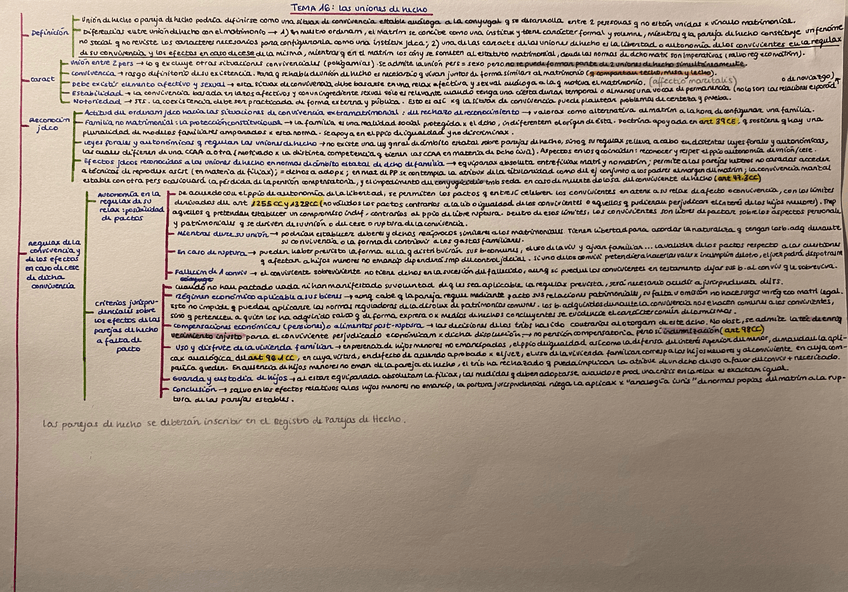 TEMA 16: las uniones de hecho
Definición
unión de hecho o pareja de hecho podría definirse como una situax de convivencia estable análoga a la conyugal q se desarrolla entre 2 personas q no están unidas x vínculo matrimonial.
Diferencias entre unión de hecho con el matrimonio → 1) en nuestro ordenam, el matrim se concibe como una institux y tiene carácter formal y solemne, mientras q la pareja de hecho constituye un fenómeno
social q no reviste los caracteres necesarios para configurarla como una institux jdca; 2) una de las caracts de las uniones de hecho es la libertad o autonomía de los convivientes en la regulax
de su convivencia, y los efectos en caso de cese de la misma, mientras q en el matrim los cóny se someten al estatuto matrimonial, donde las normas de dcho matr son imperativas (salvo rég eco matrim).
caract
unión entre 2 pers → lo q excluye otras situaciones convivenciales (poligamias). Se admite la unión pers = sexo pero no se puede formar parte de 2 uniones de hecho simultáneamente.
Convivencia → rasgo definitorio de su existencia. Para q se hable de unión de hecho es necesario q vivan juntos de forma similar al matrimonio (q compartan techo, mesa y lecho).
Debe existir elemento afectivo y sexual → esta situax de convivencia debe basarse en una relax afectiva y sexual análoga a la q motiva el matrimonio. (affectio maritalis)
o de noviazgo)
Estabilidad → la convivencia basada en lazos afectivos y con ingrediente sexual solo es relevante cuando tenga una cierta durax temporal o al menos una vocax de permanencia (no lo son las relaciones esporád
Notoriedad → STS. la coexistencia debe ser practicada de forma externa y pública. Esto es así xq la situax de convivencia puede plantear problemas de certeza y prueba.
Reconocim
jdco
Actitud del ordenam jdco hacia las situaciones de convivencia extramatrimonial: del rechazo al reconocimiento → valorax como alternativa al matrim a la hora de configurar una familia.
Familia no matrimonial: la protección constitucional → la familia es una realidad social protegida x el dcho, indiferentem del origen de esta. Doctrina apoyada en art 39CE, q sostiene q hay una
pluralidad de modelos familiares amparados x esta norma. Se apoya en el ppio de igualdad y no discriminax.
Leyes forales y autonómicas q regulan las uniones de hecho → no existe una ley gnral de ámbito estatal sobre parejas de hecho, sino q su regulax se lleva a cabo en distintas leyes forales y autonómicas,
las cuales difieren de una CCAA a otra (motivado x la distinta competencia q tienen las CCAA en materia de dcho civil). Aspectos en los q coinciden: reconocer y respetar el ppio autonomía de unión/cese.
Efectos jdcos reconocidos a las uniones de hecho en normas de ámbito estatal de dcho de familia → equiparax absoluta entre filiax matr y no matrim; permite a las parejas hetero no casadas acceder
a técnicas de reprodux asist (en materia de filiax); = dchos a adopx; en mat de PP se contempla la atribux de la titularidad como del ej conjunto a los padres al margen del matrim; la convivencia marital
estable con otra pers ocasionará la pérdida de la pensión compensatoria, y el impedimento del conyugicidio tmb se da en caso de muerte dolosa del conviviente de hecho (art 47.3CC)
Regulax de la
convivencia y
de los efectos
en caso de cese
de dicha
convivencia
Autonomía en la
regulax de su
relax: posibilidad
de pactos
De acuerdo con el ppio de autonomía de la libertad, se permiten los pactos q entre sí celebren los convivientes en atenx a su relax de afecto o convivencia, con los límites
derivados del art 1255CC y 1328CC (no válidos los pactos contrarios a la lib o igualdad de los convivientes o aquellos q pudieran perjudicar el interés de los hijos menores). Tmp
aquellos q pretendan establecer un compromiso indef. contrarios al ppio de libre ruptura. Dentro de esos límites, los convivientes son libres de pactar sobre los aspectos personales
y patrimoniales q se deriven de su unión o del cese o ruptura de la convivencia.
Mientras dure su unión → podrían establecer deberes y dchos recíprocos similares a los matrimoniales. Tienen libertad para acordar la naturaleza q tengan los b. adq durante
su convivencia o la forma de contribuir a los gastos familiares.
En caso de ruptura → pueden haber previsto la forma en la q distribuirán sus b comunes, el uso de la viv y ajuar familiar ... la validez de los pactos respecto a las cuestiones
q afectan a hijos menores no emancip dependerá smp del control judicial. Si uno de los convi pretendiera hacerlos valer x incumplim del otro, el juez podrá despostrarse
Fallecim de 1 conviv → el conviviente sobreviviente no tiene dchos en la sucesión del fallecido, aunq sí puede los convivientes en testamento dejar sus b. al conviv q le sobreviva.
Criterios jurispru-
denciales sobre
los efectos de las
parejas de hecho
a falta de
pacto
Cuando no han pactado nada ni han manifestado su voluntad de q les sea aplicable la regulax prevista, será necesario acudir a jurisprudencia del TS.
Régimen económico aplicable a sus bienes → aunq cabe q la pareja regule mediante pacto sus relaciones patrimoniales, su falta u omisión no hace surgir un rég eco matri legal.
compensaciones económicas (pensiones) o alimentos post-ruptura → las decisiones de los tribs ha sido contraria al otorgam de este dcho. No obst, se admite la teo de enriq
uecimiento injusto para el conviviente perjudicado económicam x dicha disoluxión → no pensión compensatoria, pero sí indemnización (art 98CC)
Uso y disfrute de la vivienda familiar → en presencia de hijos menores no emancipados, el ppio de igualdad así como la defensa del interés superior del menor, demandan la apli-
cax analógica del art 96.1CC, en cuya virtud, en defecto de acuerdo aprobado x el juez, el uso de la vivienda familiar corresp a los hijos menores y al conviviente en cuya com-
pañía queden. En ausencia de hijos menores no eman de la pareja de hecho, el trib ha rechazado q pueda implicar la atribux de un dcho de uso a favor del conviv + necesitado.
Guarda y custodia de hijos → al estar equiparada absolutam la filiax, las medidas q deben adoptarse cuando se prod una crisis en la relax es exactam igual.
Conclusión → salvo en los efectos relativos a los hijos menores no emancip, la postura jurisprudencial niega la aplicax x "analogía iuris" de normas propias del matrim a la rup-
tura de las parejas estables.
Las parejas de hecho se deberán inscribir en el Registro de Parejas de Hecho.